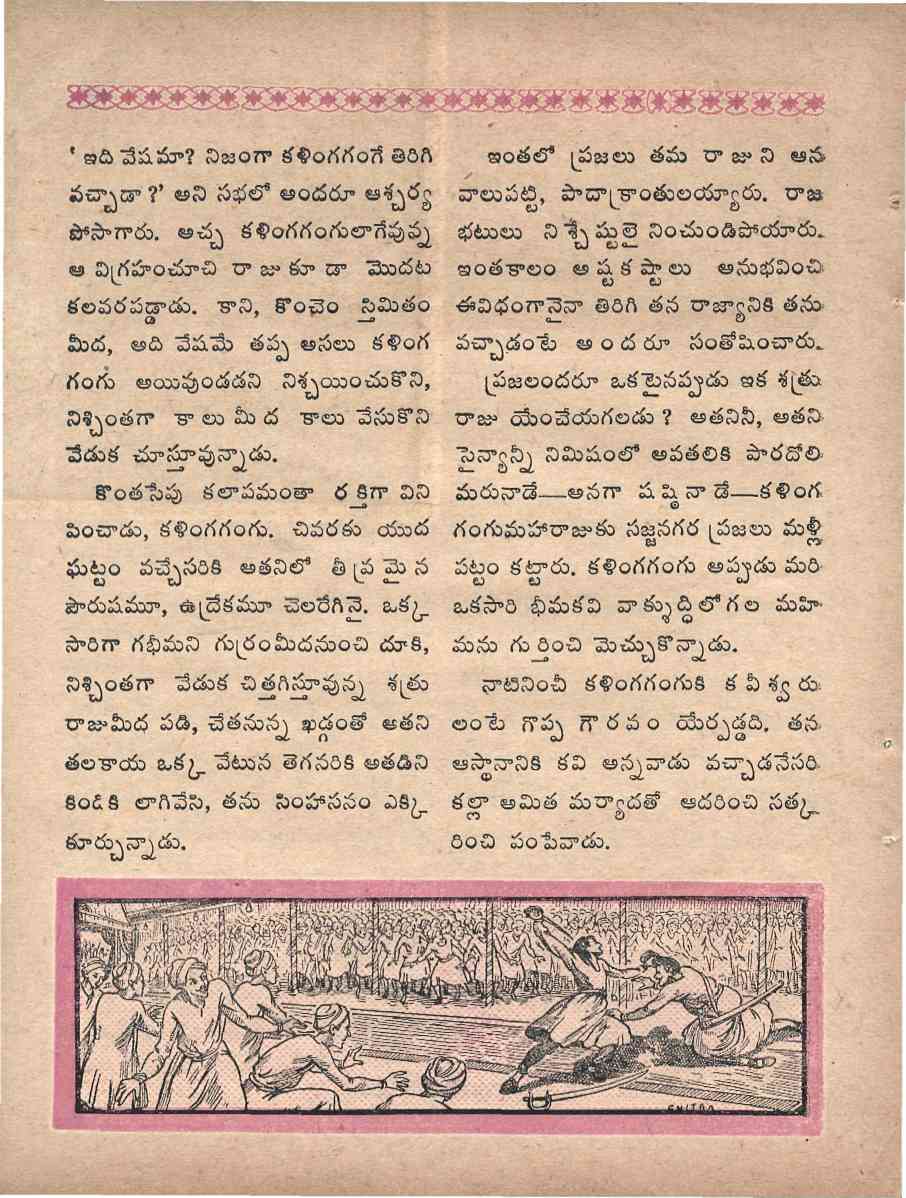 ‘ ఇది వేషమా? నిజంగా కళింగగంగే తిరిగి
వచ్చాడా ?’ అని సభలో అందరూ ఆశ్చర్య
పోసాగారు. అచ్చ కళింగగంగులాగేవున్న
ఆ విగ్రహంచూచి రాజుకూడా మొదట
కలవరపడ్డాడు. కాని, కొంచెం స్తిమితం
మీద, అది వేషమే తప్ప అసలు కళింగ
గంగు అయివుండడని నిశ్చయించుకొని,
నిశ్చింతగా కాలుమీద కాలు వేసుకొని
వేడుక చూస్తూవున్నాడు.
కొంతసేపు కలాపమంతా రక్తిగా విని
పించాడు, కళింగగంగు. చివరకు యుద
ఘట్టం వచ్చేసరికి అతనిలో తీవ్రమైన
పౌరుషమూ, ఉద్రేకమూ చెలరేగినై. ఒక్క
సారిగా గభీమని గుర్రంమీదనుంచి దూకి,
నిశ్చింతగా వేడుక చిత్తగిస్తూవున్న శత్రు
రాజుమీద పడి, చేతనున్న ఖడ్గంతో అతని
తలకాయ ఒక్క వేటున తెగనరికి అతడిని
కిండకి లాగివేసి, తను సింహాసనం ఎక్కి
కూర్చున్నాడు.
ఇంతలో ప్రజలు తమ రాజుని ఆన
వాలుపట్టి, పాదాక్రాంతులయ్యారు. రాజ
భటులు నిశ్చేష్టులై నించుండిపోయారు.
ఇంతకాలం అష్టకష్టాలు అనుభవించి
ఈవిధంగానైనా తిరిగి తన రాజ్యానికి తను
వచ్చాడంటే అందరూ సంతోషించారు.
ప్రజలందరూ ఒకటైనప్పుడు ఇక శత్రు
రాజు యేంచేయగలడు ? అతనినీ, అతని
సైన్యాన్నీ నిమిషంలో అవతలికి పారదోలి
మరునాడే—అనగా షష్ఠినాడే—కళింగ
గంగుమహారాజుకు సజ్జనగర ప్రజలు మళ్లీ
పట్టం కట్టారు. కళింగగంగు అప్పుడు మరి
ఒకసారి భీమకవి వాక్శుద్ధిలోగల మహి
మను గుర్తించి మెచ్చుకొన్నాడు.
నాటినించీ కళింగగంగుకి కవీశ్వరు
లంటే గొప్ప గౌరవం యేర్పడ్డది. తన
ఆస్థానానికి కవి అన్నవాడు వచ్చాడనేసరి
కల్లా అమిత మర్యాదతో ఆదరించి సత్క
రించి పంపేవాడు.